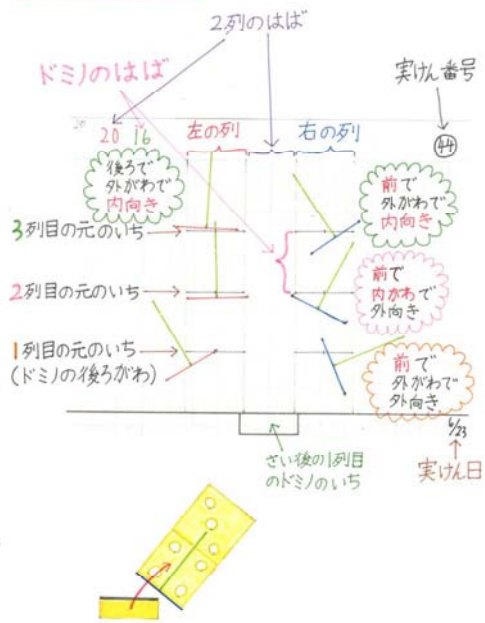 2列のはば
ドミノのはば
実けん番号
20 16
左の列
右の列
44
後ろで
外がわで
内向き
前で
外がわで
内向き
3列目の元のいち
2列目の元のいち
前で
内がわで
外向き
1列目の元のいち
(ドミノの後ろがわ)
前で
外がわで
外向き
6/23
さい後の1列目
のドミノのいち
実けん日